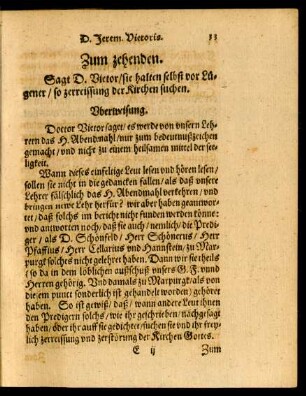 D. Jerem. Vietoris. 33
Zum zehenden.
Sagt D. Vietor/ sie halten selbst vor Lü-
gener/ so zerreissung der Kirchen suchen.
Vberweisung.
Doctor Vietor saget/ es werde von vnsern Leh-
rern das H. Abendmahl/ nur zum bedeutnußzeichen
gemacht/ vnd nicht zu einem heilsamen mittel der see-
ligkeit.
Wann dieses einfeltige Leut lesen vnd hören lesen/
sollen sie nicht in die gedancken fallen/ als daß vnsere
Lehrer fälschlich das H. Abendmahl verkehren/ vnd
bringen newe Lehr herfür? wir aber haben geantwor-
tet/ daß solchs im bericht nicht funden werden könne:
vnd antworten noch/ daß sie auch/ nemlich/ die Predi-
ger/ als D. Schönfeld/ Herr Schönerus/ Herr
Pfaffius/ Herr Cellarius vnd Hannstein/ zu Mar-
purgk solches nicht gelehret haben. Dann wir sie theils
/ so da in dem löblichen außschuß vnsers G. F. vnnd
Herren gehörig. Vnd damals zu Marpurgk/ als von
die em punct sonderlich ist gehandelt worden) gehöret
haben. So ist gewiß/ daß/ wann andere Leut ihnen
den Predigern solchs/ wie ihr geschrieben/ nachgesagt
haben/ oder ihr auff sie gedichtet/ suchen sie vnd ihr frey-
lich zerreissung vnd zerstörung der Kirchen Gottes.
E ij Zum